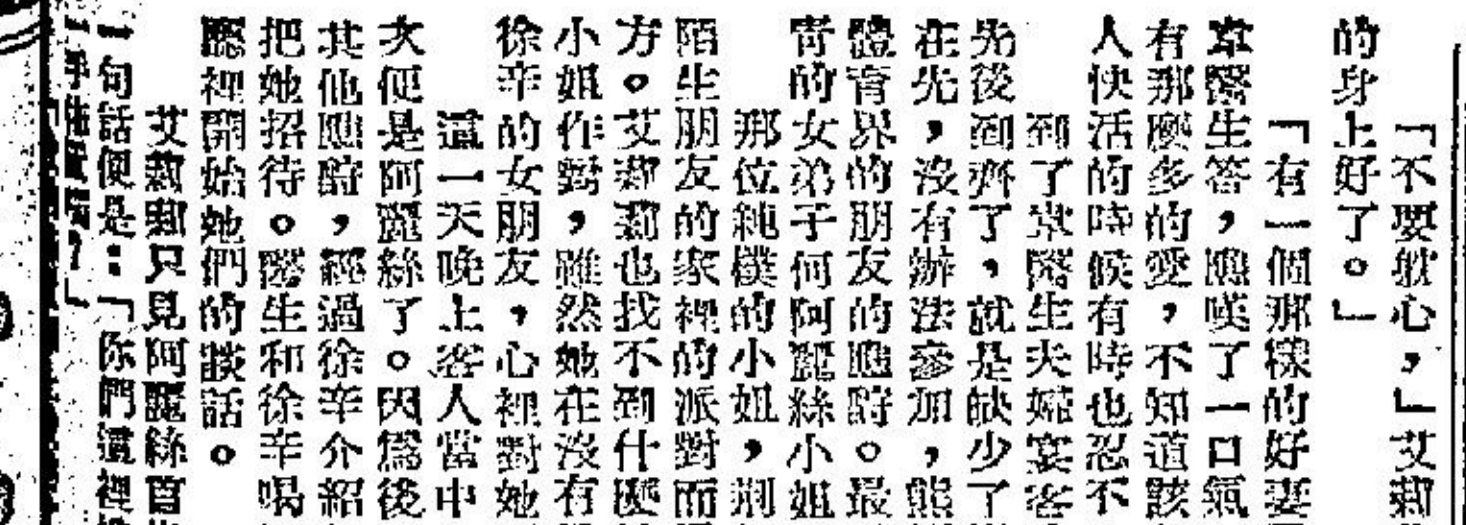 「不要躭心，」艾莉
的身上好了。」
「有一個那樣的好妻
醫生答，嘆了一口氣
有那麼多的愛，不知道該
人快活的時候有時也忍不
到了醫生夫婦宴客
先後到齊了，就是缺少了
在先，沒有辦法參加，熊
體育界的朋友的應酬。最
青的女弟子何阿麗絲小姐
那位純樸的小姐，荆
陌生朋友的家裡的派對而
方。艾莉莉也找不到什麼
小姐作對，雖然她在沒有
徐辛的女朋友，心裡對她
這一天晚上客人當中
次便是阿麗絲了。因爲後
其他應酬，經過徐辛介紹
把她招待。醫生和徐辛喝
廳裡開始她們的談話。
艾莉莉只見阿麗絲首
一句話便是：「你們這裡